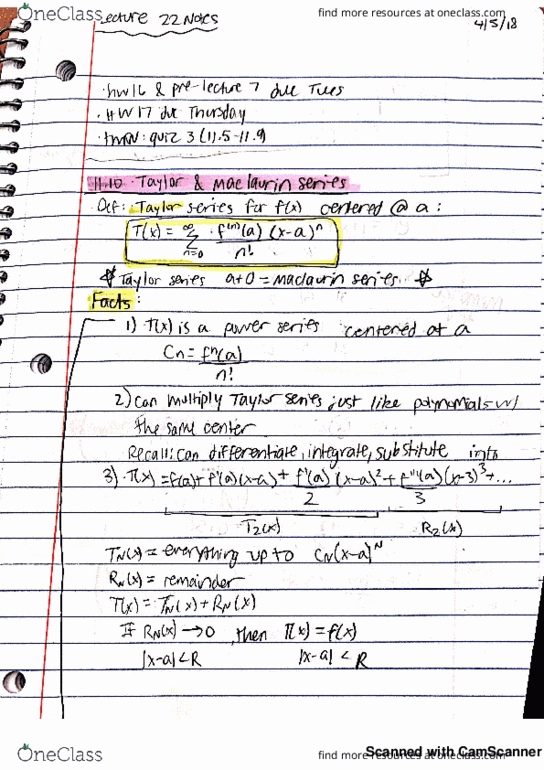 OneClass
find more resources at oneclass.com
Lecture 22 Notes
4/5/18
·hw16 & pre-lecture 7 due Tues
·HW 17 due Thursday
·tmrw: quiz 3 (11.5-11.9)
11.10 Taylor & maclaurin series
Def: Taylor series for f(x) centered @ a:
T(x) = ∞ Σ n=0 · f⁽ⁿ⁾(a) (x-a)ⁿ / n!
Taylor series a+0 = maclaurin series
Facts:
1) T(x) is a power series centered at a
Cn = fⁿ(a) / n!
2) can multiply Taylor series just like polynomials w/
the same center
Recall: can differentiate, integrate, substitute into
3) ·T(x) = f(a) + f'(a)(x-a) + f''(a)/2 (x-a)² + f'''(a)/3 (x-3)³ + ...
T₂(x) R₂(x)
TN(x) = everything up to CN(x-a)ᴺ
RN(x) = remainder
T(x) = TN(x) + RN(x)
If RN(x) → 0, then T(x) = f(x)
|x-a| < R |x-a| < R
Scanned with CamScanner
OneClass
find more resources at oneclass.com